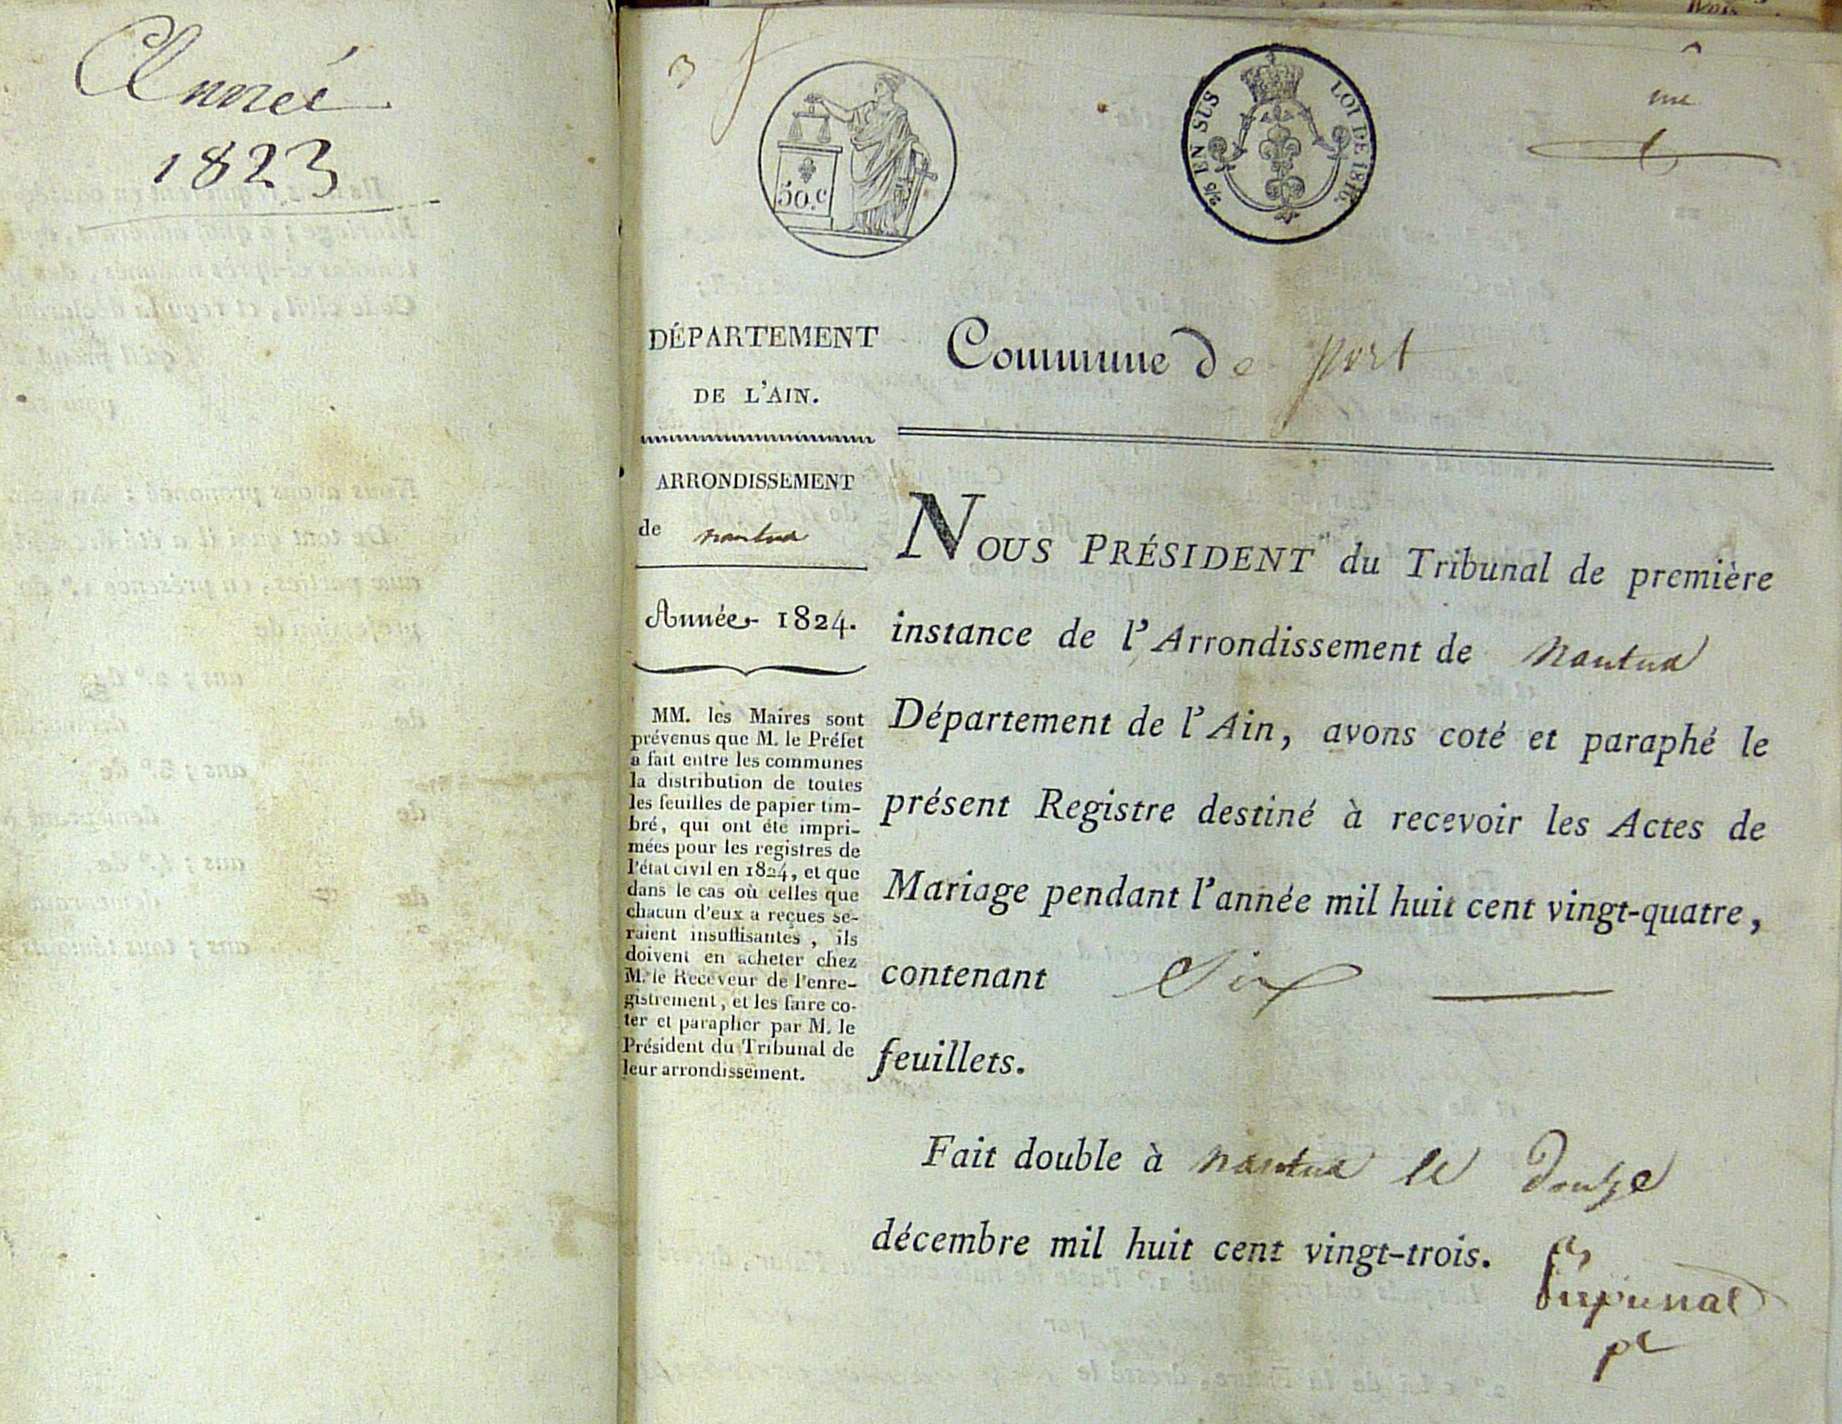 Année
1823
3
50.c
2/5 EN SUS
LOI DE 1816.
DÉPARTEMENT
DE L'AIN.
ARRONDISSEMENT
de nantua
Année 1824.
MM. les Maires sont
prévenus que M. le Préfet
a fait entre les communes
la distribution de toutes
les feuilles de papier tim-
bré, qui ont été impri-
mées pour les registres de
l'état civil en 1824, et que
dans le cas où celles que
chacun d'eux a reçues se-
raient insuffisantes, ils
doivent en acheter chez
M. le Receveur de l'enre-
gistrement, et les faire co-
ter et parapher par M. le
Président du Tribunal de
leur arrondissement.
Commune de port
NOUS PRÉSIDENT du Tribunal de première
instance de l'Arrondissement de nantua
Département de l'Ain, avons coté et paraphé le
présent Registre destiné à recevoir les Actes de
Mariage pendant l'année mil huit cent vingt-quatre,
contenant Six
feuillets.
Fait double à nantua le Douze
décembre mil huit cent vingt-trois.